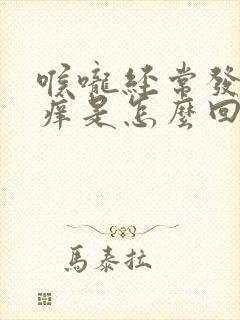 喉嚨經常發
癢是怎麼回
馬泰拉